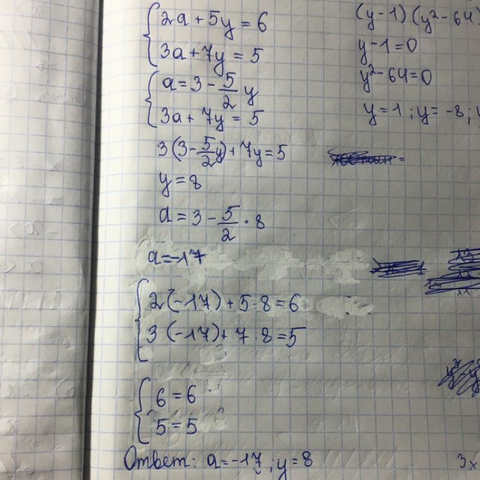 2a + 5y = 6
3a + 7y = 5
a = 3 - 5/2 y
3a + 7y = 5
3(3 - 5/2 y) + 7y = 5
y = 8
a = 3 - 5/2 · 8
a = -17
2(-17) + 5·8 = 6
3(-17) + 7·8 = 5
6 = 6
5 = 5
Ответ: a = -17; y = 8
(y-1)(y²-64)
y-1=0
y²-64=0
y=1; y=-8;
3x